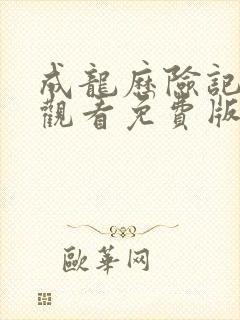 成龍歷險記
觀看免費版
歐華网